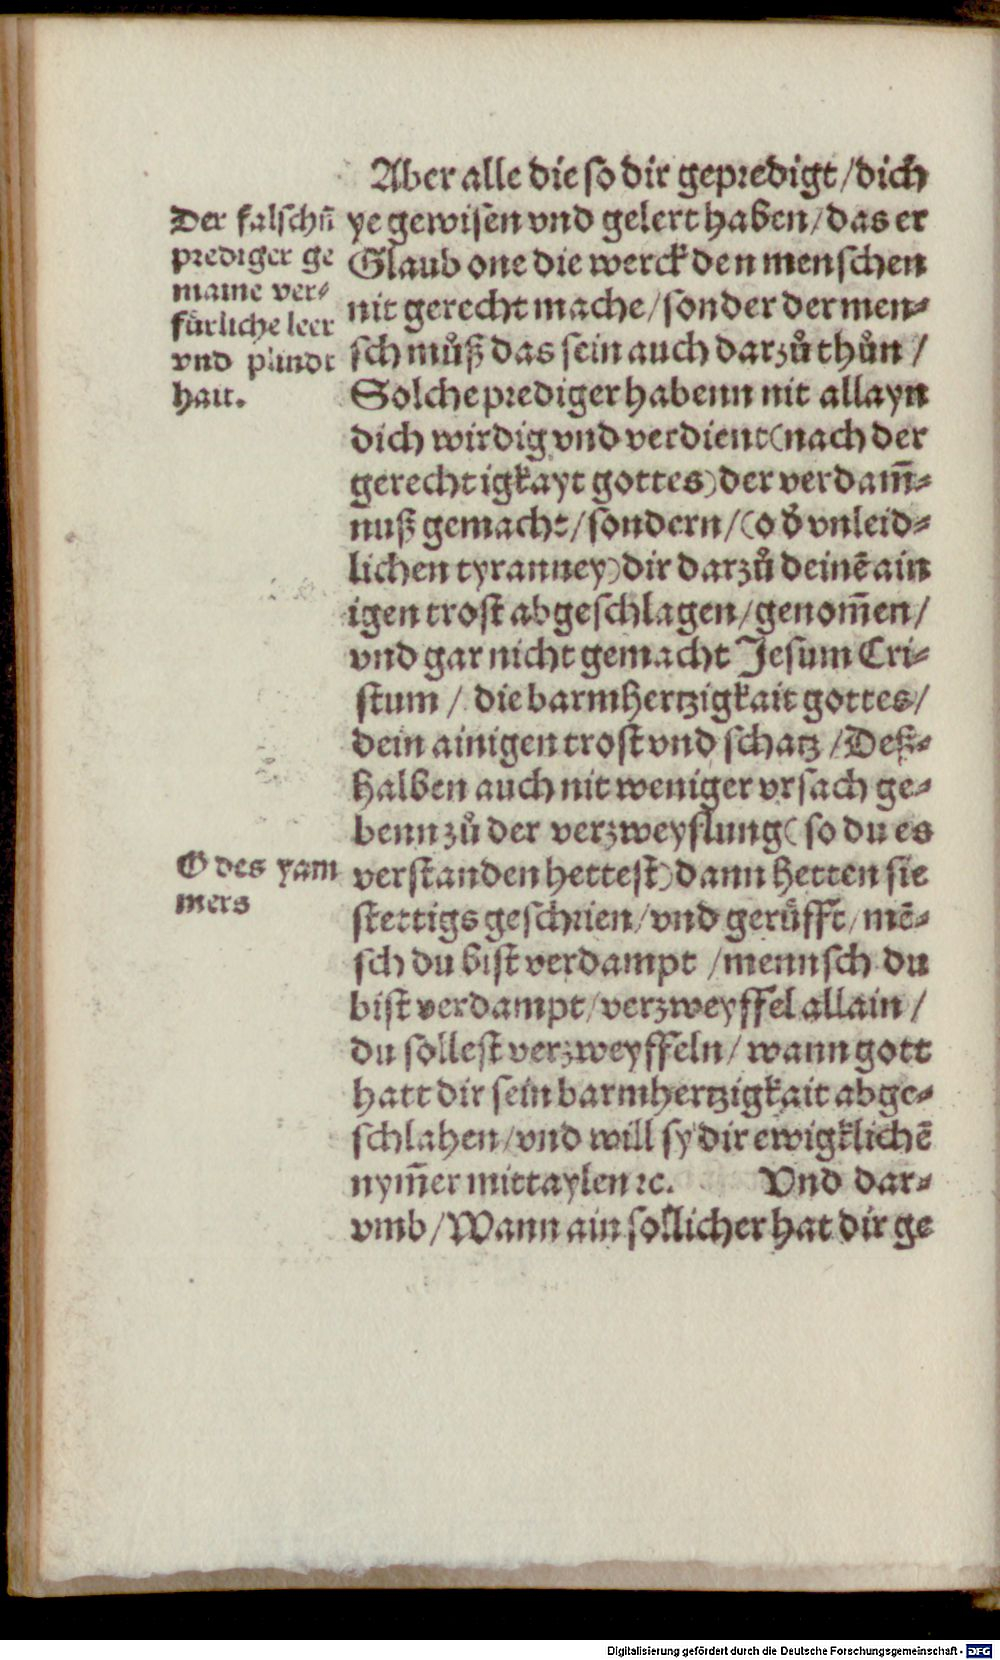 Der falschñ
prediger ge
maine ver⸗
fürliche leer
vnd plindt
hait.
O des yam
mers
Aber alle die so dir gepredigt / dich
ye gewisen vnd gelert haben / das er
Glaub one die werck den menschen
nit gerecht mache / sonder der men⸗
sch můß das sein auch darzů thůn /
Solche prediger habenn nit allayn
dich wirdig vnd verdient (nach der
gerechtigkayt gottes) der verdam̄⸗
nuß gemacht / sondern / (o d' vnleid⸗
lichen tyranney) dir darzů deinē ain
igen trost abgeschlagen / genom̄en /
vnd gar nicht gemacht Jesum Cri⸗
stum / die barmhertzigkait gottes /
dein ainigen trost vnd schatz / Deß⸗
halben auch nit weniger vrsach ge⸗
benn zů der verzweyflung (so du es
verstanden hettest) dann hetten sie
stettigs geschrien / vnd gerüfft / mē⸗
sch du bist verdampt / mennsch du
bist verdampt / verzweyffel allain /
du sollest verzweyffeln / wann gott
hatt dir sein barmhertzigkait abge⸗
schlahen / vnd will sy dir ewigklichē
nym̄er mittaylen ⁊c. Vnd dar⸗
vmb / Wann ain sollicher hat dir ge
Digitalisierung gefördert durch die Deutsche Forschungsgemeinschaft - DFG